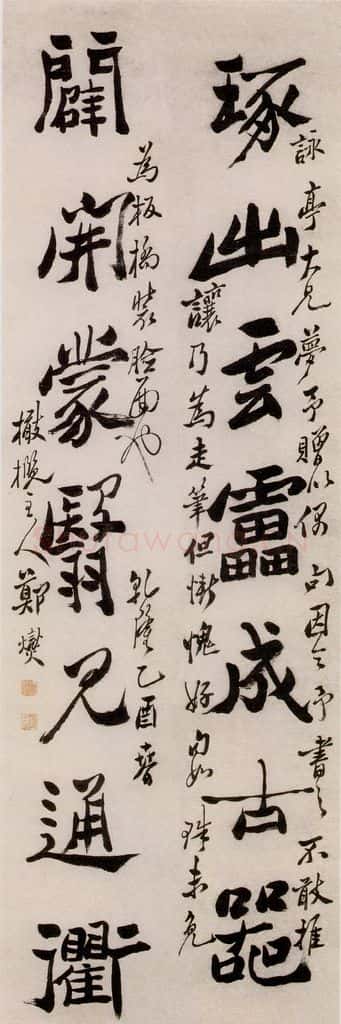 琢出雲靁成古器
詠亭大兄夢予贈以偶句因令予書之不敢推
讓乃為走筆但慚愧好句如珠未免
為板橋裝臉面也
乾隆乙酉春
闢開蒙翳見通衢
橄欖主人鄭燮